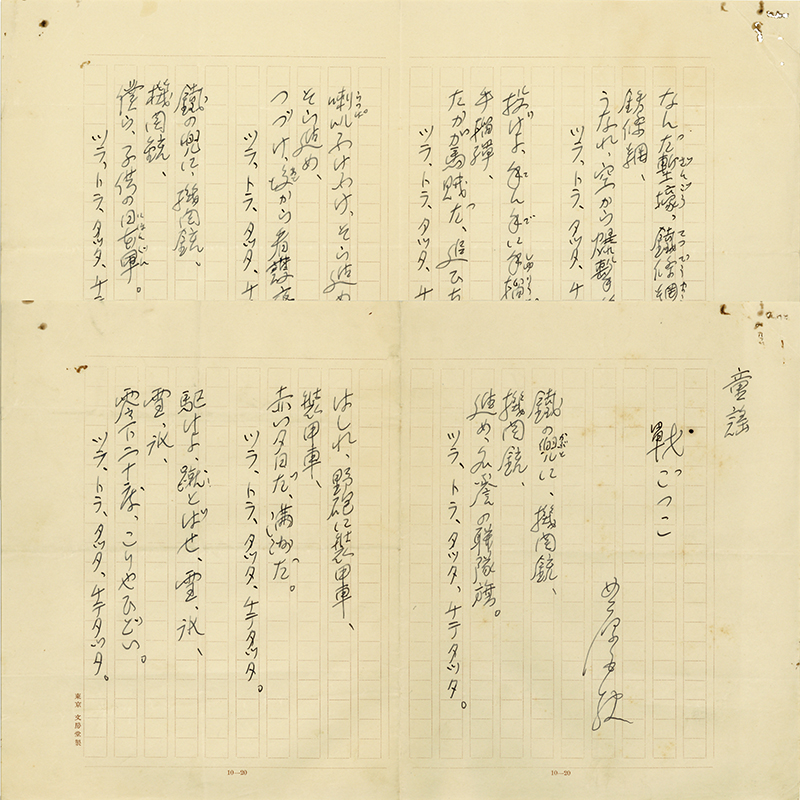 なんだ塹壕、鐵條網
鉄條網、
うなれ、空から爆撃
ツラ、トラ、タッタ、チ
投げよ、てんでに手榴
手榴弾、
たかが馬賊だ、追ひち
ツラ、トラ、タッタ、チ
喇叭ふけふけ、そら進め
そら進め、
つづけ、後から看護
ツラ、トラ、タッタ、チテ
鐵の兜に、機関銃、
機関銃、
僕ら、子供の日本軍。
ツラ、トラ、タッタ、チテ
童謡
戦ごっこ
鐵の兜に、機関銃、
機関銃、
進め、名誉の聯隊旗。
ツラ、トラ、タッタ、チテタッタ。
はしれ、野砲に装甲車、
装甲車、
赤い夕日だ、満洲だ。
ツラ、トラ、タッタ、チテタッタ。
駆けよ、蹴とばせ、雪、氷、
雪、氷、
零下二十度、こりやひどい。
ツラ、トラ、タッタ、チテタッタ。
東京 文房堂製
10—20
10—20